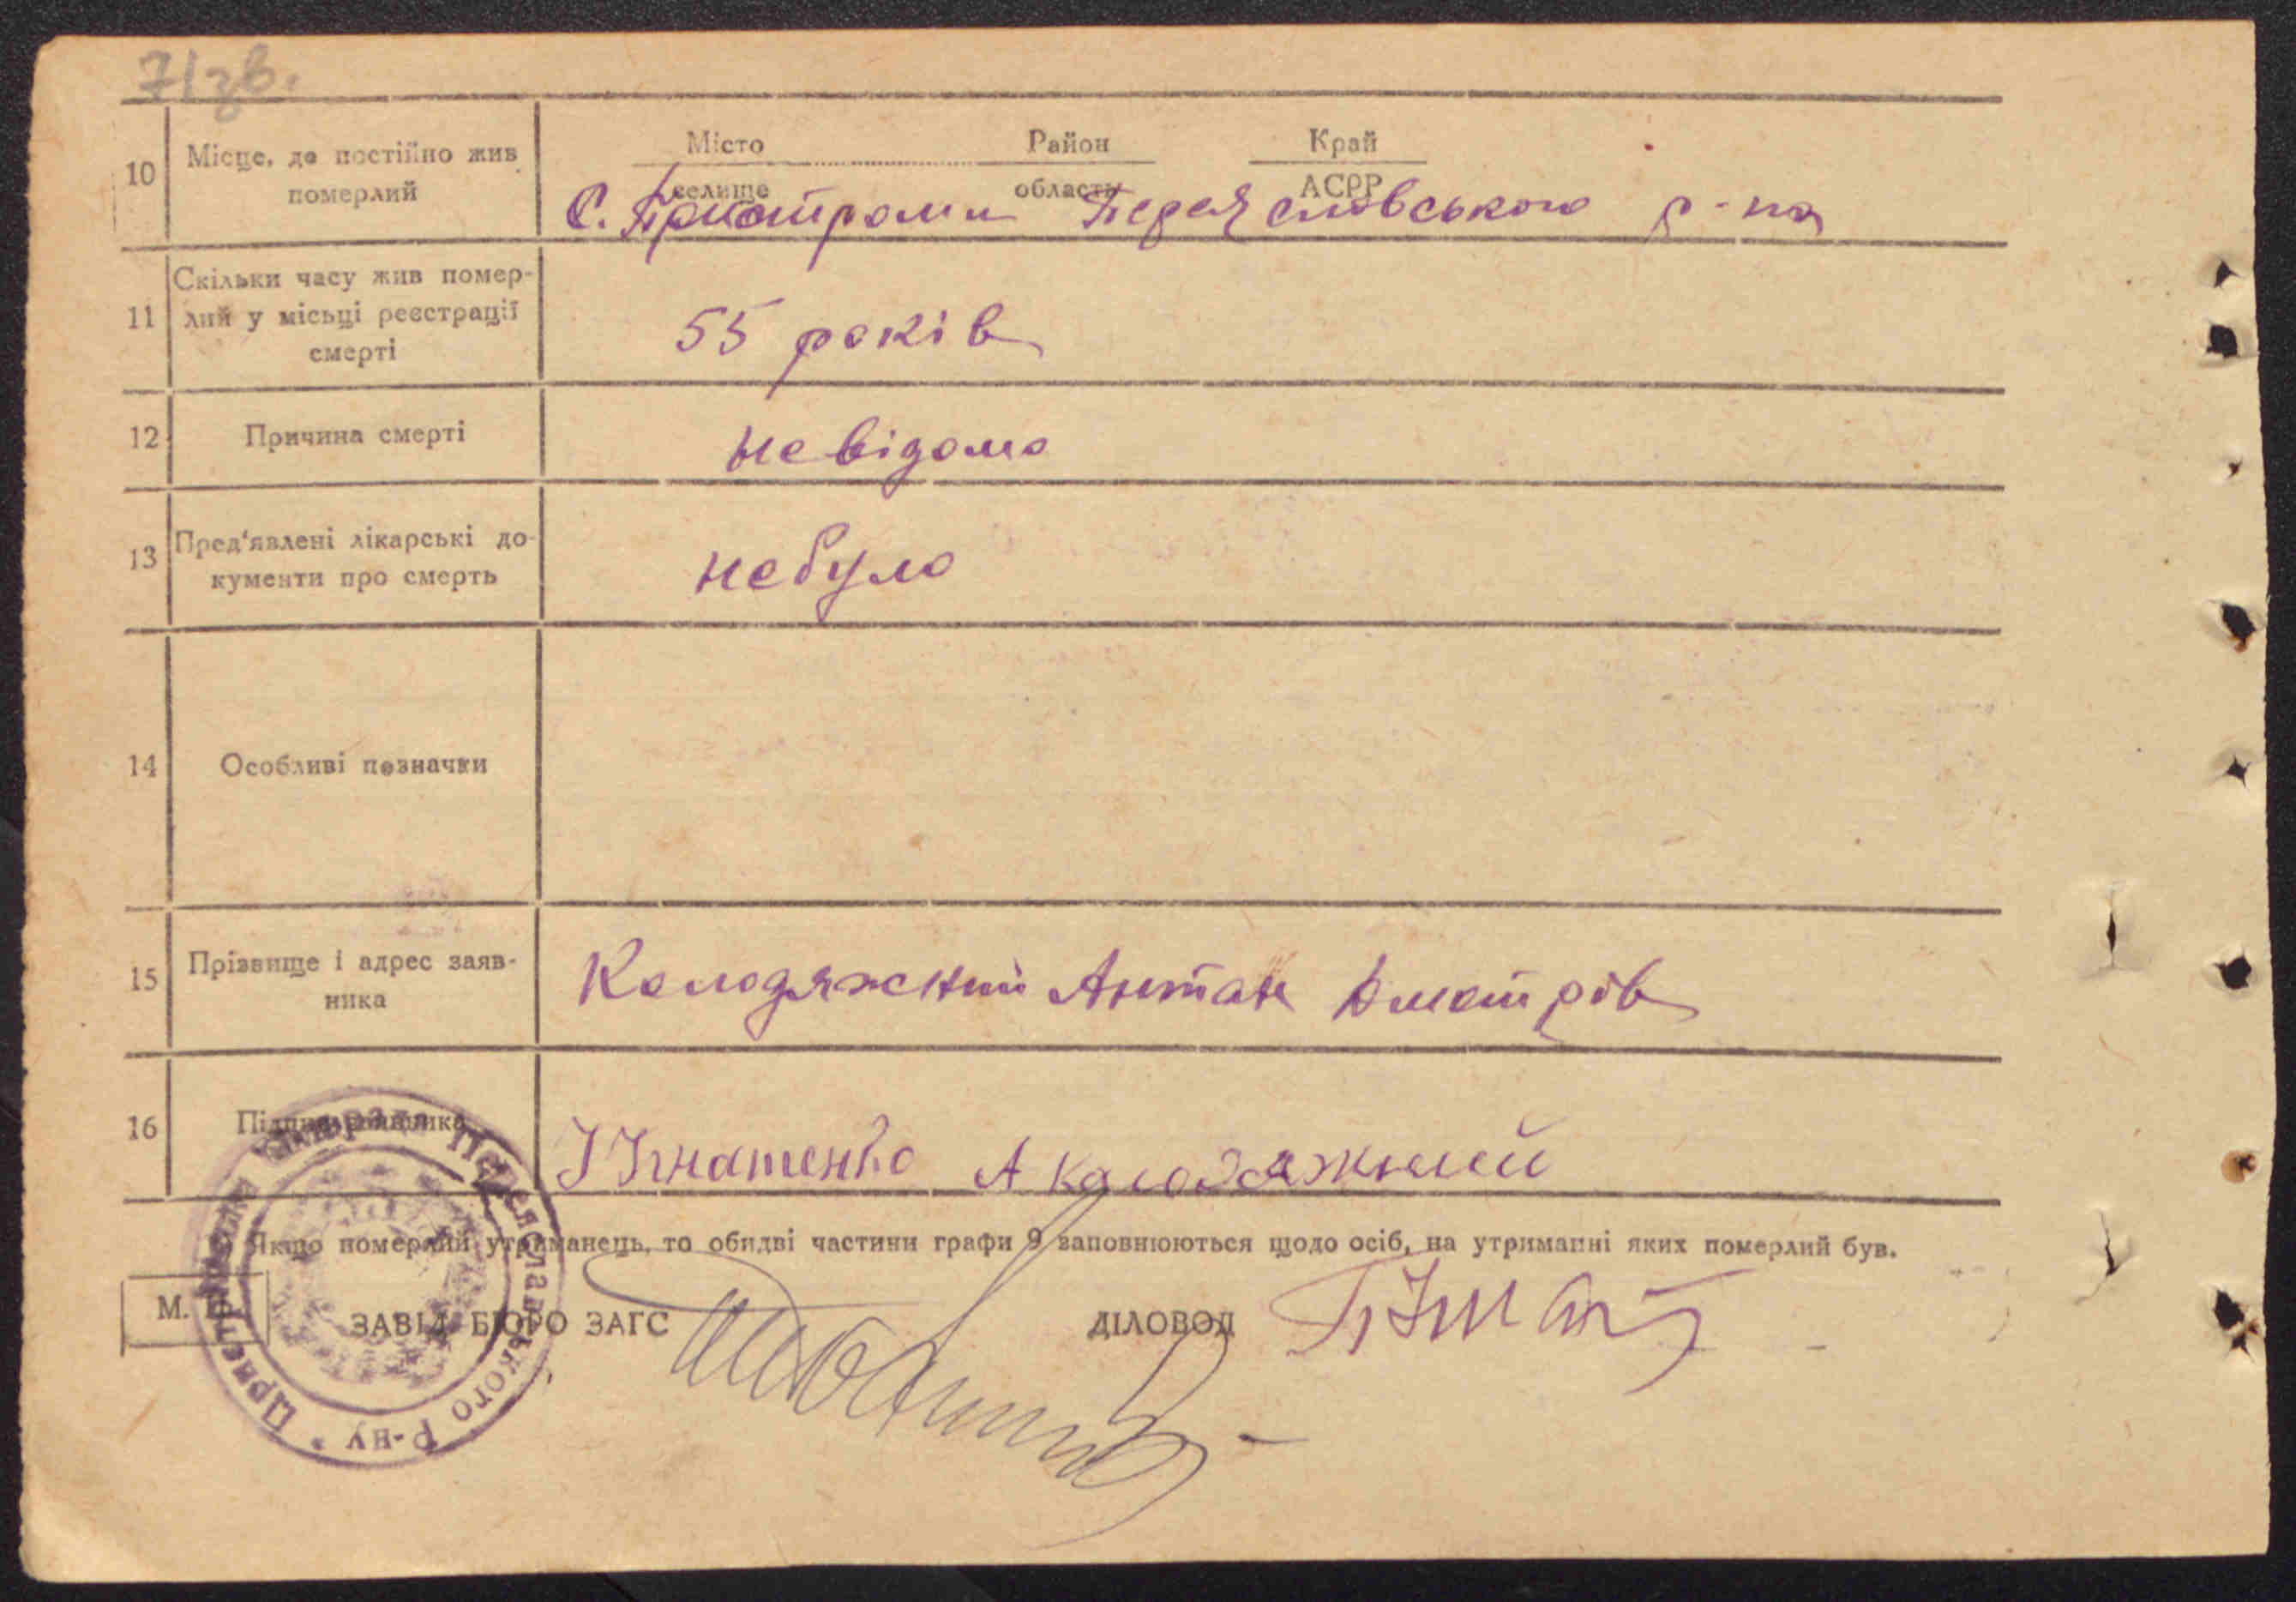 71 зв.
10 Місце, де постійно жив померлий
Місто Район Край
селище область АСРР
с. Пристроми Переясловського р-на
11 Скільки часу жив помер-
лий у місьці реєстрації
смерті
55 років
12 Причина смерті
невідомо
13 Пред'явлені лікарські до-
кументи про смерть
небуло
14 Особливі позначки
15 Прізвище і адрес заяв-
ника
Колодяжний Антон Дмитрів
16 Підпис заявника
І Ігнатенко А Колодяжний
Якщо померлий утриманець, то обидві частини графи 9 заповнюються щодо осіб, на утриманні яких померлий був.
М. П.
ЗАВІД. БЮРО ЗАГС
ДІЛОВОД
Сільрада Переяславського Р-ну